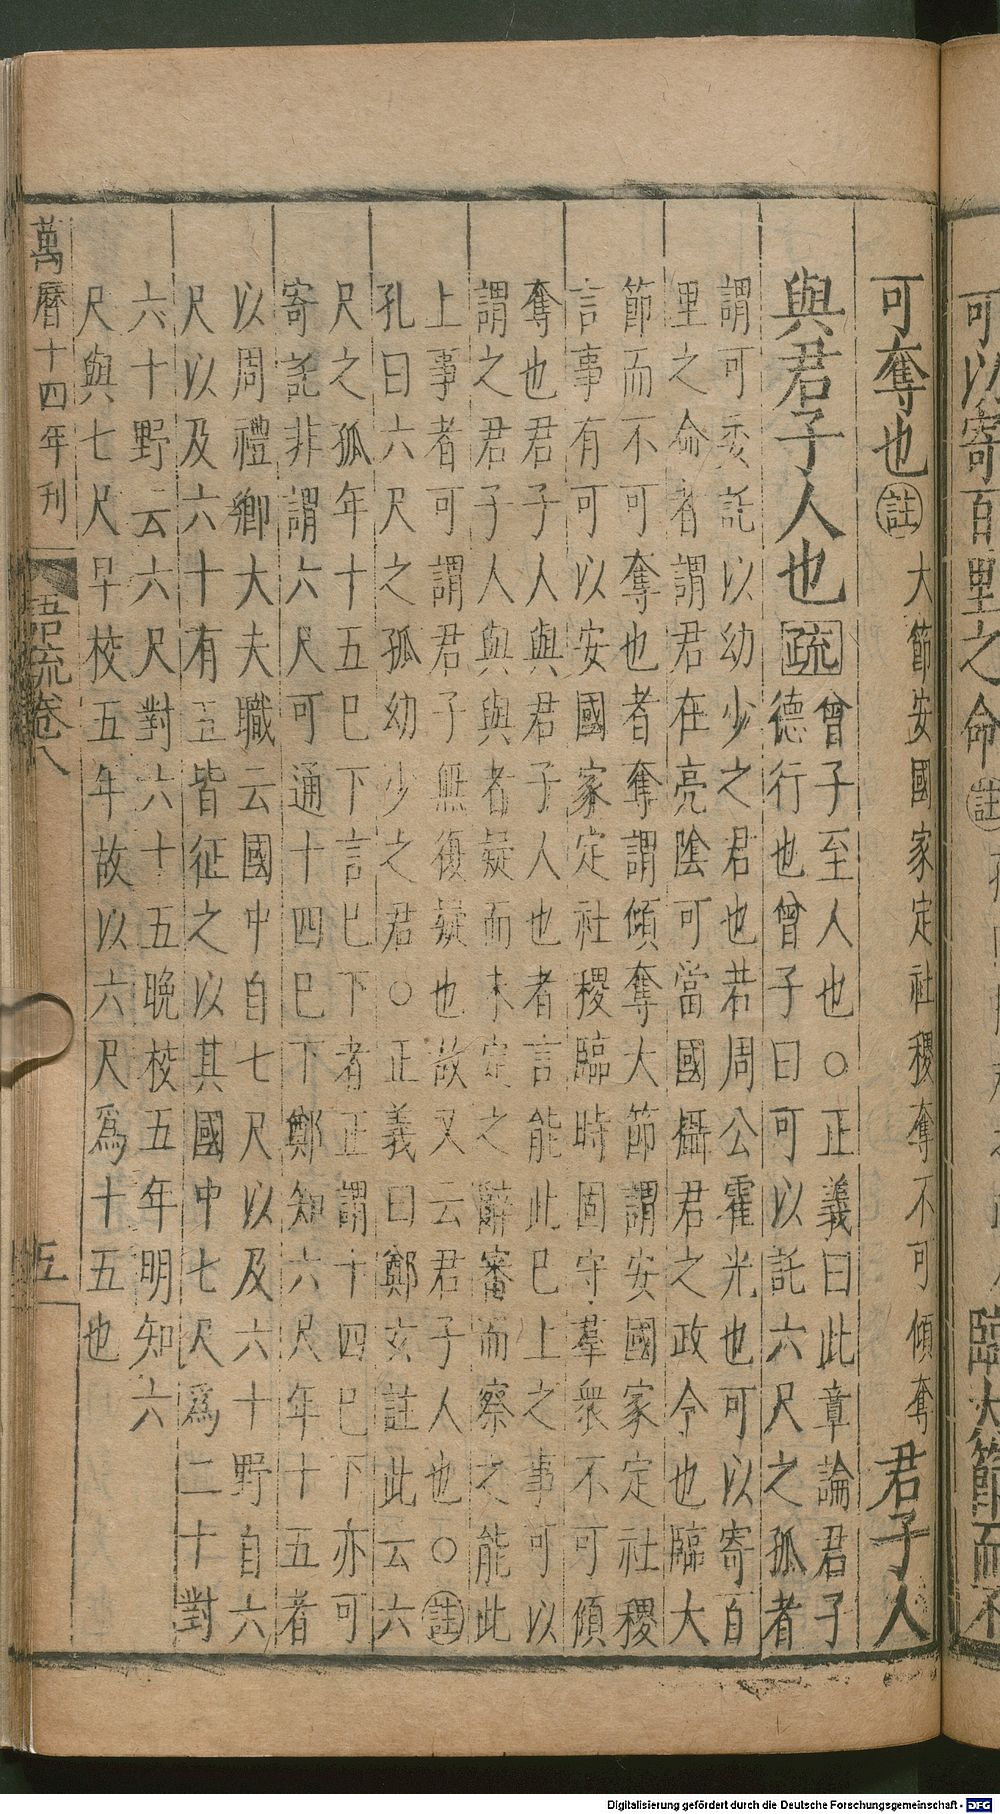 可以寄百里之命
註
臨大節而不
可奪也 註 大節安國家定社稷奪不可傾奪 君子人
與君子人也 疏 曾子至人也○正義曰此章論君子
德行也曾子曰可以託六尺之孤者
謂可委託以幼少之君也若周公霍光也可以寄百
里之命者謂君在亮陰可當國攝君之政令也臨大
節而不可奪也者奪謂傾奪大節謂安國家定社稷
言事有可以安國家定社稷臨時固守羣衆不可傾
奪也君子人與君子人也者言能此巳上之事可以
謂之君子人與與者疑而未定之辭審而察之能此
上事者可謂君子無復疑也故又云君子人也○註
孔曰六尺之孤幼少之君○正義曰鄭玄註此云六
尺之孤年十五巳下言巳下者正謂十四巳下亦可
寄託非謂六尺可通十四巳下鄭知六尺年十五者
以周禮鄉大夫職云國中自七尺以及六十野自六
尺以及六十有五皆征之以其國中七尺爲二十對
六十野云六尺對六十五晚校五年明知六
尺與七尺早校五年故以六尺爲十五也
萬曆十四年刊
語疏卷八
五
Digitalisierung gefördert durch die Deutsche Forschungsgemeinschaft - DFG